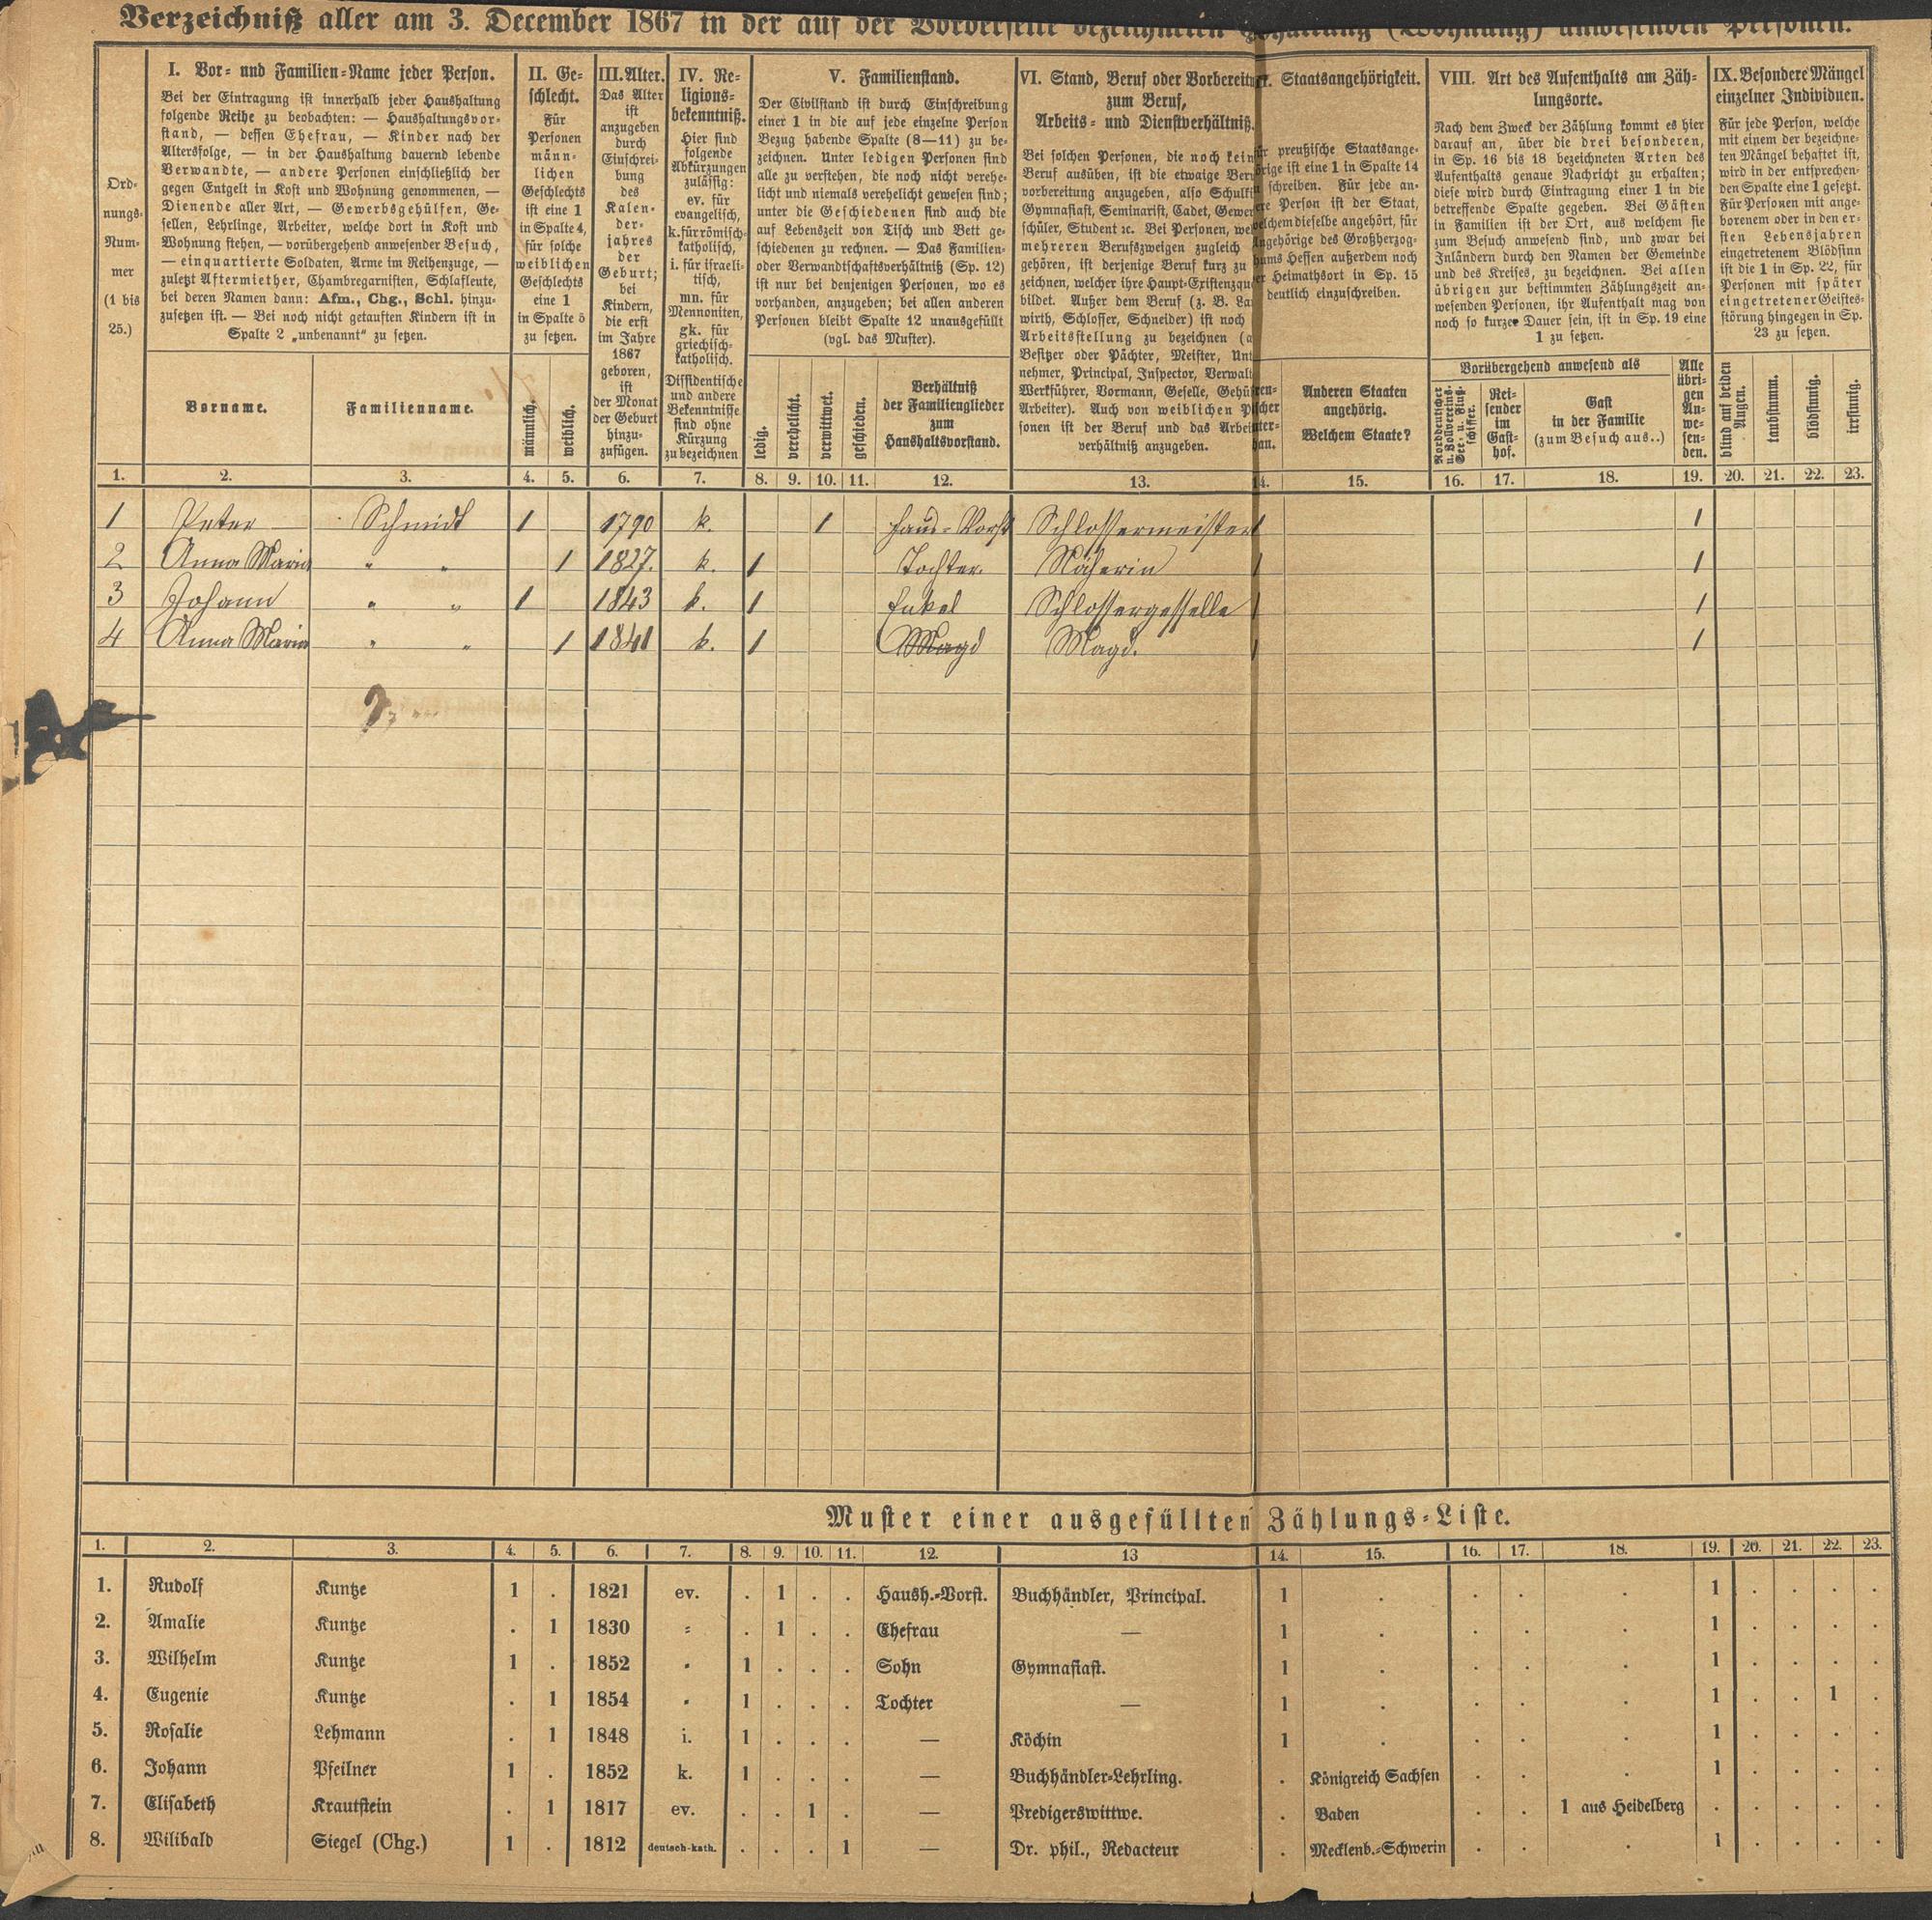 Verzeichniß aller am 3. December 1867 in der auf der Vorderseite bezeichneten Haushaltung (Wohnung) anwesenden Personen.
Ord-
nungs-
Num-
mer
(1 bis
25.)
I. Vor- und Familien-Name jeder Person.
Bei der Eintragung ist innerhalb jeder Haushaltung
folgende Reihe zu beobachten: — Haushaltungsvor-
stand, — dessen Ehefrau, — Kinder nach der
Altersfolge, — in der Haushaltung dauernd lebende
Verwandte, — andere Personen einschließlich der
gegen Entgelt in Kost und Wohnung genommenen, —
Dienende aller Art, — Gewerbsgehülfen, Ge-
sellen, Lehrlinge, Arbeiter, welche dort in Kost und
Wohnung stehen, — vorübergehend anwesender Besuch,
— einquartierte Soldaten, Arme im Reihenzuge, —
zuletzt Aftermiether, Chambregarnisten, Schlafleute,
bei deren Namen dann: Afm., Chg., Schl. hinzu-
zusetzen ist. — Bei noch nicht getauften Kindern ist in
Spalte 2 „unbenannt“ zu setzen.
Vorname.
Familienname.
II. Ge-
schlecht.
Für
Personen
männ-
lichen
Geschlechts
ist eine 1
in Spalte 4,
für solche
weiblichen
Geschlechts
eine 1
in Spalte 5
zu setzen.
männlich.
weiblich.
III. Alter.
Das Alter
ist
anzugeben
durch
Einschrei-
bung
des
Kalen-
der-
jahres
der
Geburt;
bei
Kindern,
die erst
im Jahre
1867
geboren,
ist
der Monat
der Geburt
hinzu-
zufügen.
IV. Re-
ligions-
bekenntniß.
Hier sind
folgende
Abkürzungen
zulässig:
ev. für
evangelisch,
k. für römisch-
katholisch,
i. für israeli-
tisch,
mn. für
Mennoniten,
gk. für
griechisch-
katholisch.
Dissidentische
und andere
Bekenntnisse
sind ohne
Kürzung
zu bezeichnen
V. Familienstand.
Der Civilstand ist durch Einschreibung
einer 1 in die auf jede einzelne Person
Bezug habende Spalte (8—11) zu be-
zeichnen. Unter ledigen Personen sind
alle zu verstehen, die noch nicht verehe-
licht und niemals verehelicht gewesen sind;
unter die Geschiedenen sind auch die
auf Lebenszeit von Tisch und Bett ge-
schiedenen zu rechnen. — Das Familien-
oder Verwandtschaftsverhältniß (Sp. 12)
ist nur bei denjenigen Personen, wo es
vorhanden, anzugeben; bei allen anderen
Personen bleibt Spalte 12 unausgefüllt
(vgl. das Muster).
ledig.
verehelicht.
verwittwet.
geschieden.
Verhältniß
der Familienglieder
zum
Haushaltsvorstand.
VI. Stand, Beruf oder Vorbereitu
zum Beruf,
Arbeits- und Dienstverhältniß.
Bei solchen Personen, die noch kein
Beruf ausüben, ist die etwaige Beru
vorbereitung anzugeben, also Schulki
Gymnasiast, Seminarist, Cadet, Gewer
schüler, Student ꝛc. Bei Personen, wel
mehreren Berufszweigen zugleich
gehören, ist derjenige Beruf kurz zu
zeichnen, welcher ihre Haupt-Existenzqu
bildet. Außer dem Beruf (z. B. La
wirth, Schlosser, Schneider) ist noch
Arbeitsstellung zu bezeichnen (a
Besitzer oder Pächter, Meister, Unt
nehmer, Principal, Inspector, Verwal
Werkführer, Vormann, Geselle, Gehü
Arbeiter). Auch von weiblichen P
sonen ist der Beruf und das Arbei
verhältniß anzugeben.
Staatsangehörigkeit.
ür preußische Staatsange-
örige ist eine 1 in Spalte 14
schreiben. Für jede an-
ere Person ist der Staat,
elchem dieselbe angehört, für
ngehörige des Großherzog-
ums Hessen außerdem noch
er Heimathsort in Sp. 15
deutlich einzuschreiben.
Anderen Staaten
angehörig.
Welchem Staate?
VIII. Art des Aufenthalts am Zäh-
lungsorte.
Nach dem Zweck der Zählung kommt es hier
darauf an, über die drei besonderen,
in Sp. 16 bis 18 bezeichneten Arten des
Aufenthalts genaue Nachricht zu erhalten;
diese wird durch Eintragung einer 1 in die
betreffende Spalte gegeben. Bei Gästen
in Familien ist der Ort, aus welchem sie
zum Besuch anwesend sind, und zwar bei
Inländern durch den Namen der Gemeinde
und des Kreises, zu bezeichnen. Bei allen
übrigen zur bestimmten Zählungszeit an-
wesenden Personen, ihr Aufenthalt mag von
noch so kurzer Dauer sein, ist in Sp. 19 eine
1 zu setzen.
Vorübergehend anwesend als
Norddeutscher
u. Vollvereins-
See- u. Fluß-
schiffer.
Rei-
sender
im
Gast-
hof.
Gast
in der Familie
(zum Besuch aus..)
Alle
übri-
gen
An-
we-
sen-
den.
IX. Besondere Mängel
einzelner Individuen.
Für jede Person, welche
mit einem der bezeichne-
ten Mängel behaftet ist,
wird in der entsprechen-
den Spalte eine 1 gesetzt.
Für Personen mit ange-
borenem oder in den er-
sten Lebensjahren
eingetretenem Blödsinn
ist die 1 in Sp. 22, für
Personen mit später
eingetretener Geistes-
störung hingegen in Sp.
23 zu setzen.
blind auf beiden
Augen.
taubstumm.
blödsinnig.
irrsinnig.
1. 2. 3. 4. 5. 6. 7. 8. 9. 10. 11. 12. 13. 14. 15. 16. 17. 18. 19. 20. 21. 22. 23.
1 Peter Schmidt 1 1790 k. 1 Haus-Vorst Schlossermeister 1 1
2 Anna Maria " " 1 1827. k. 1 Tochter. Näherin 1 1
3 Johann " " 1 1843 k. 1 Enkel Schlossergesselle 1 1
4 Anna Maria " " 1 1841 k. 1 Magd Magd. 1 1
Muster einer ausgefüllten Zählungs-Liste.
1. 2. 3. 4. 5. 6. 7. 8. 9. 10. 11. 12. 13 14. 15. 16. 17. 18. 19. 20. 21. 22. 23.
1. Rudolf Kuntze 1 . 1821 ev. . 1 . . Haush.-Vorst. Buchhändler, Principal. 1 . . . . 1 . . . .
2. Amalie Kuntze . 1 1830 " . 1 . . Ehefrau — 1 . . . . 1 . . . .
3. Wilhelm Kuntze 1 . 1852 " 1 . . . Sohn Gymnasiast. 1 . . . . 1 . . . .
4. Eugenie Kuntze . 1 1854 " 1 . . . Tochter — 1 . . . . 1 . . 1 .
5. Rosalie Lehmann . 1 1848 i. 1 . . . — Köchin 1 . . . . 1 . . . .
6. Johann Pfeilner 1 . 1852 k. 1 . . . — Buchhändler-Lehrling. . Königreich Sachsen . . . 1 . . . .
7. Elisabeth Krautstein . 1 1817 ev. . . 1 . — Predigerswittwe. . Baden . . 1 aus Heidelberg . . . . .
8. Wilibald Siegel (Chg.) 1 . 1812 deutsch-kath. . . . 1 — Dr. phil., Redacteur . Mecklenb.-Schwerin . . . 1 . . . .